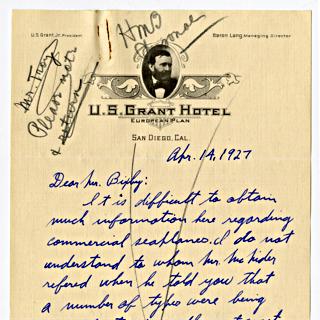 U.S. Grant Jr. President
Baron Long Managing Director
HMB
Personal
Mr. Tracy
Please note
& return
U.S. GRANT HOTEL
EUROPEAN PLAN
SAN DIEGO, CAL.
Apr. 14, 1927
Dear Mr. Bixby:
It is difficult to obtain
much information here regarding
commercial seaplanes. I do not
understand to whom Mr.
refered when he told you that
a number of types were being